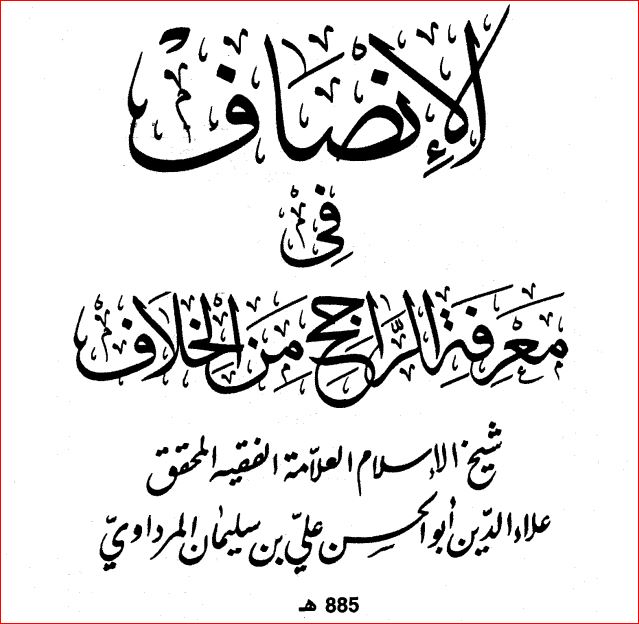 الإِنْصَافْ
فِي
مَعْرِفَةِ الرَّاجِحِ مِنَ الْخِلَافْ
شيخ الإسلام العلّامة الفقيه المحقق
علاء الدّين أبو الحسن عليّ بن سليمان المرداويّ
885 هـ